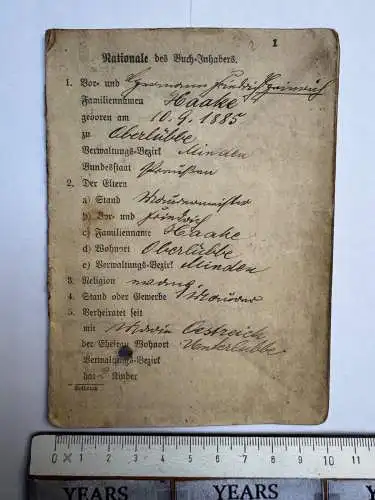 1
Nationale des Buch-Inhabers.
1. Vor- und Hermann Friedrich Heinrich
Familiennamen Haake
geboren am 10. 9. 1885
zu Oberlübbe
Verwaltungs-Bezirk Minden
Bundesstaat Preußen
2. Der Eltern
a) Stand Maurermeister
b) Vor- und Friedrich
c) Familienname Haake
d) Wohnort Oberlübbe
e) Verwaltungs-Bezirk Minden
3. Religion evang.
4. Stand oder Gewerbe Maurer
5. Verheiratet seit
mit Marie Oestreich
der Ehefrau Wohnort Unterlübbe
Verwaltungs-Bezirk
hat 2 Kinder
0 1 2 3 4 5 6 7 8 9 10 11
YEARS YEARS YEARS